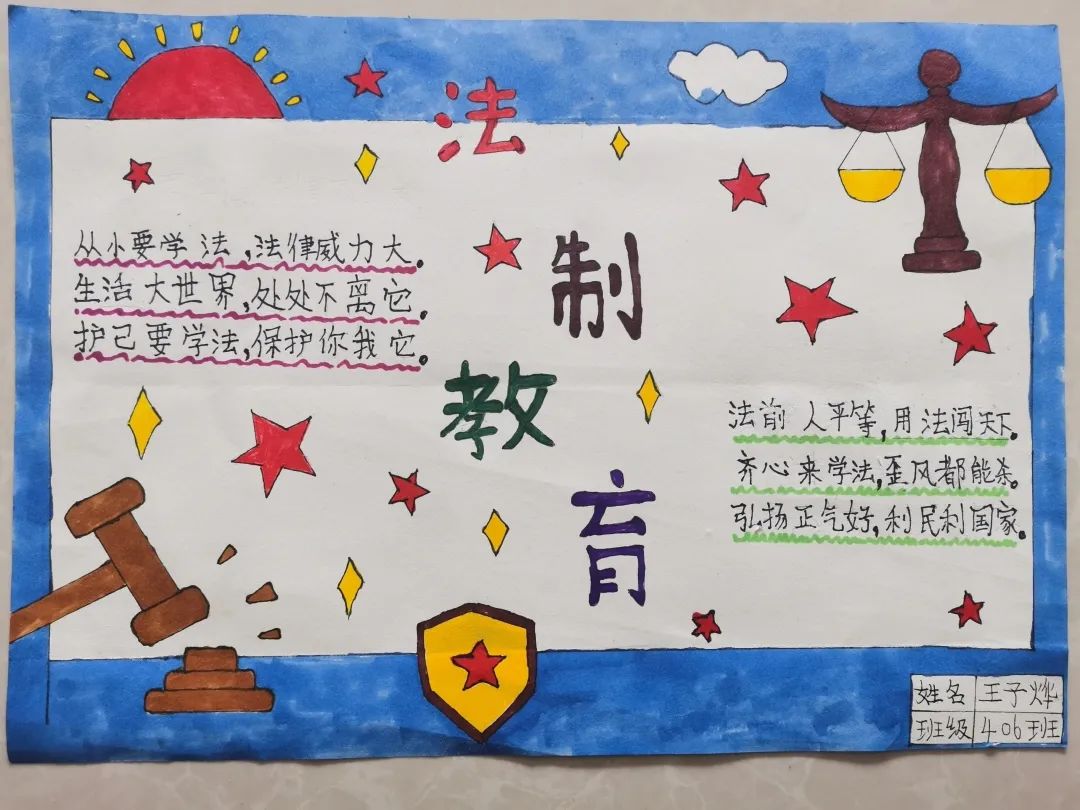 法
制
教
育
从小要学法,法律威力大。
生活大世界,处处不离它。
护己要学法,保护你我它。
法前人平等,用法闯天下。
齐心来学法,歪风都能杀。
弘扬正气好,利民利国家。
姓名 王子烨
班级 406班